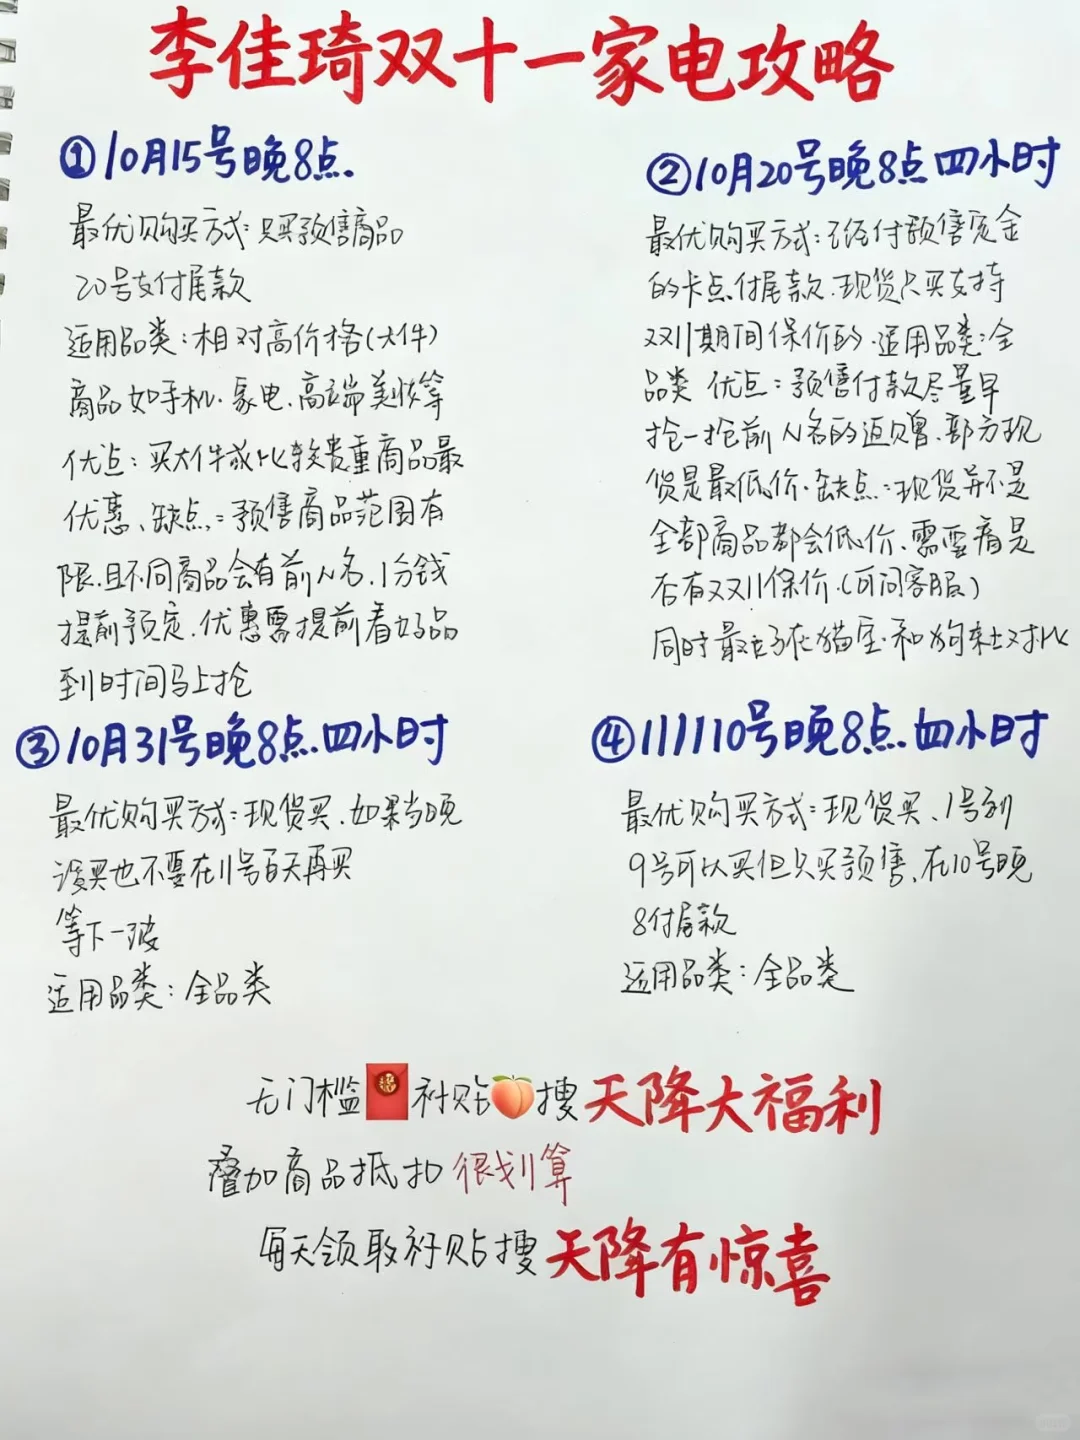 李佳琦双十一家电攻略
①10月15号晚8点.
最优购买方式:只买预售商品
20号支付尾款
适用品类:相对高价格(大件)
商品如手机.家电.高端美妆等
优点:买大件或比较贵重商品最
优惠、缺点:预售商品范围有
限.且不同商品会有前N名.1分钱
提前预定.优惠需提前看好品
到时间马上抢
②10月20号晚8点四小时
最优购买方式:已经付预售定金
的卡点付尾款.现货只买支持
双11期间保价的.适用品类:全
品类 优点:预售付款尽量早
抢一抢前N名的返赠.部分现
货是最低价.缺点:现货并不是
全部商品都会低价.需要看是
否有双11保价.(可问客服)
同时最好在猫宝.和狗东对比
③10月31号晚8点.四小时
最优购买方式:现货买.如果当晚
没买也不要在11号白天再买
等下一波
适用品类:全品类
④111110号晚8点.四小时
最优购买方式:现货买、1号到
9号可以买但只买预售、在10号晚
8付尾款
适用品类:全品类
无门槛🧧补贴🍑搜天降大福利
叠加商品抵扣 很划算
每天领取补贴搜天降有惊喜